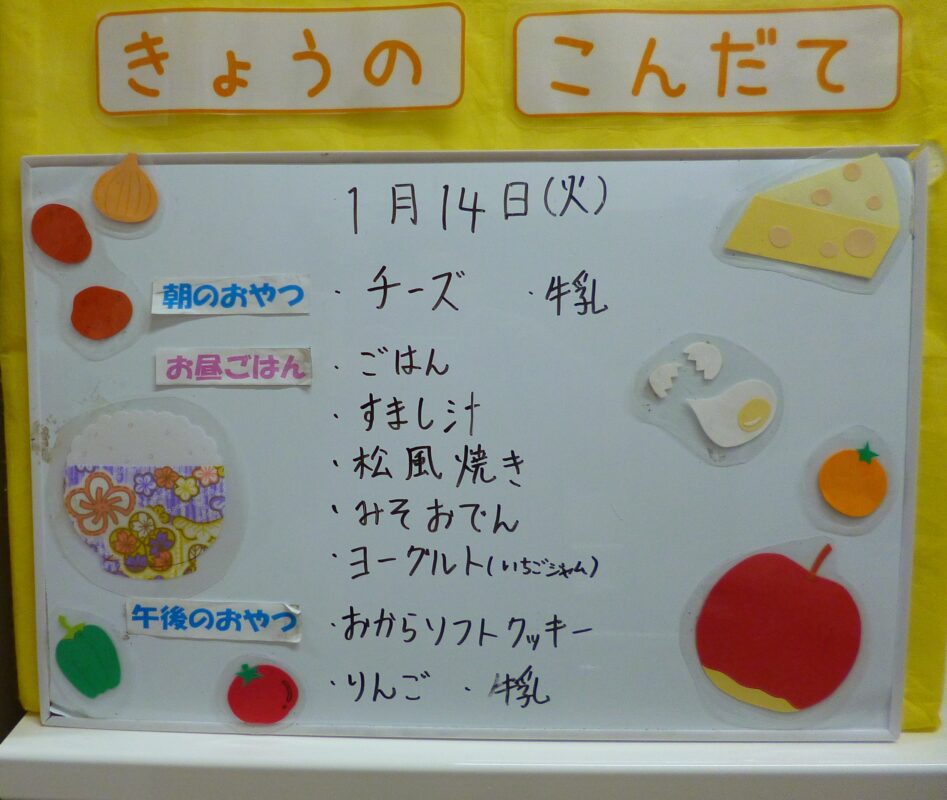 きょうの こんだて
1月14日(火)
朝のおやつ ・チーズ ・牛乳
お昼ごはん ・ごはん
・すまし汁
・松風焼き
・みそおでん
・ヨーグルト(いちごジャム)
午後のおやつ ・おからソフトクッキー
・りんご ・牛乳